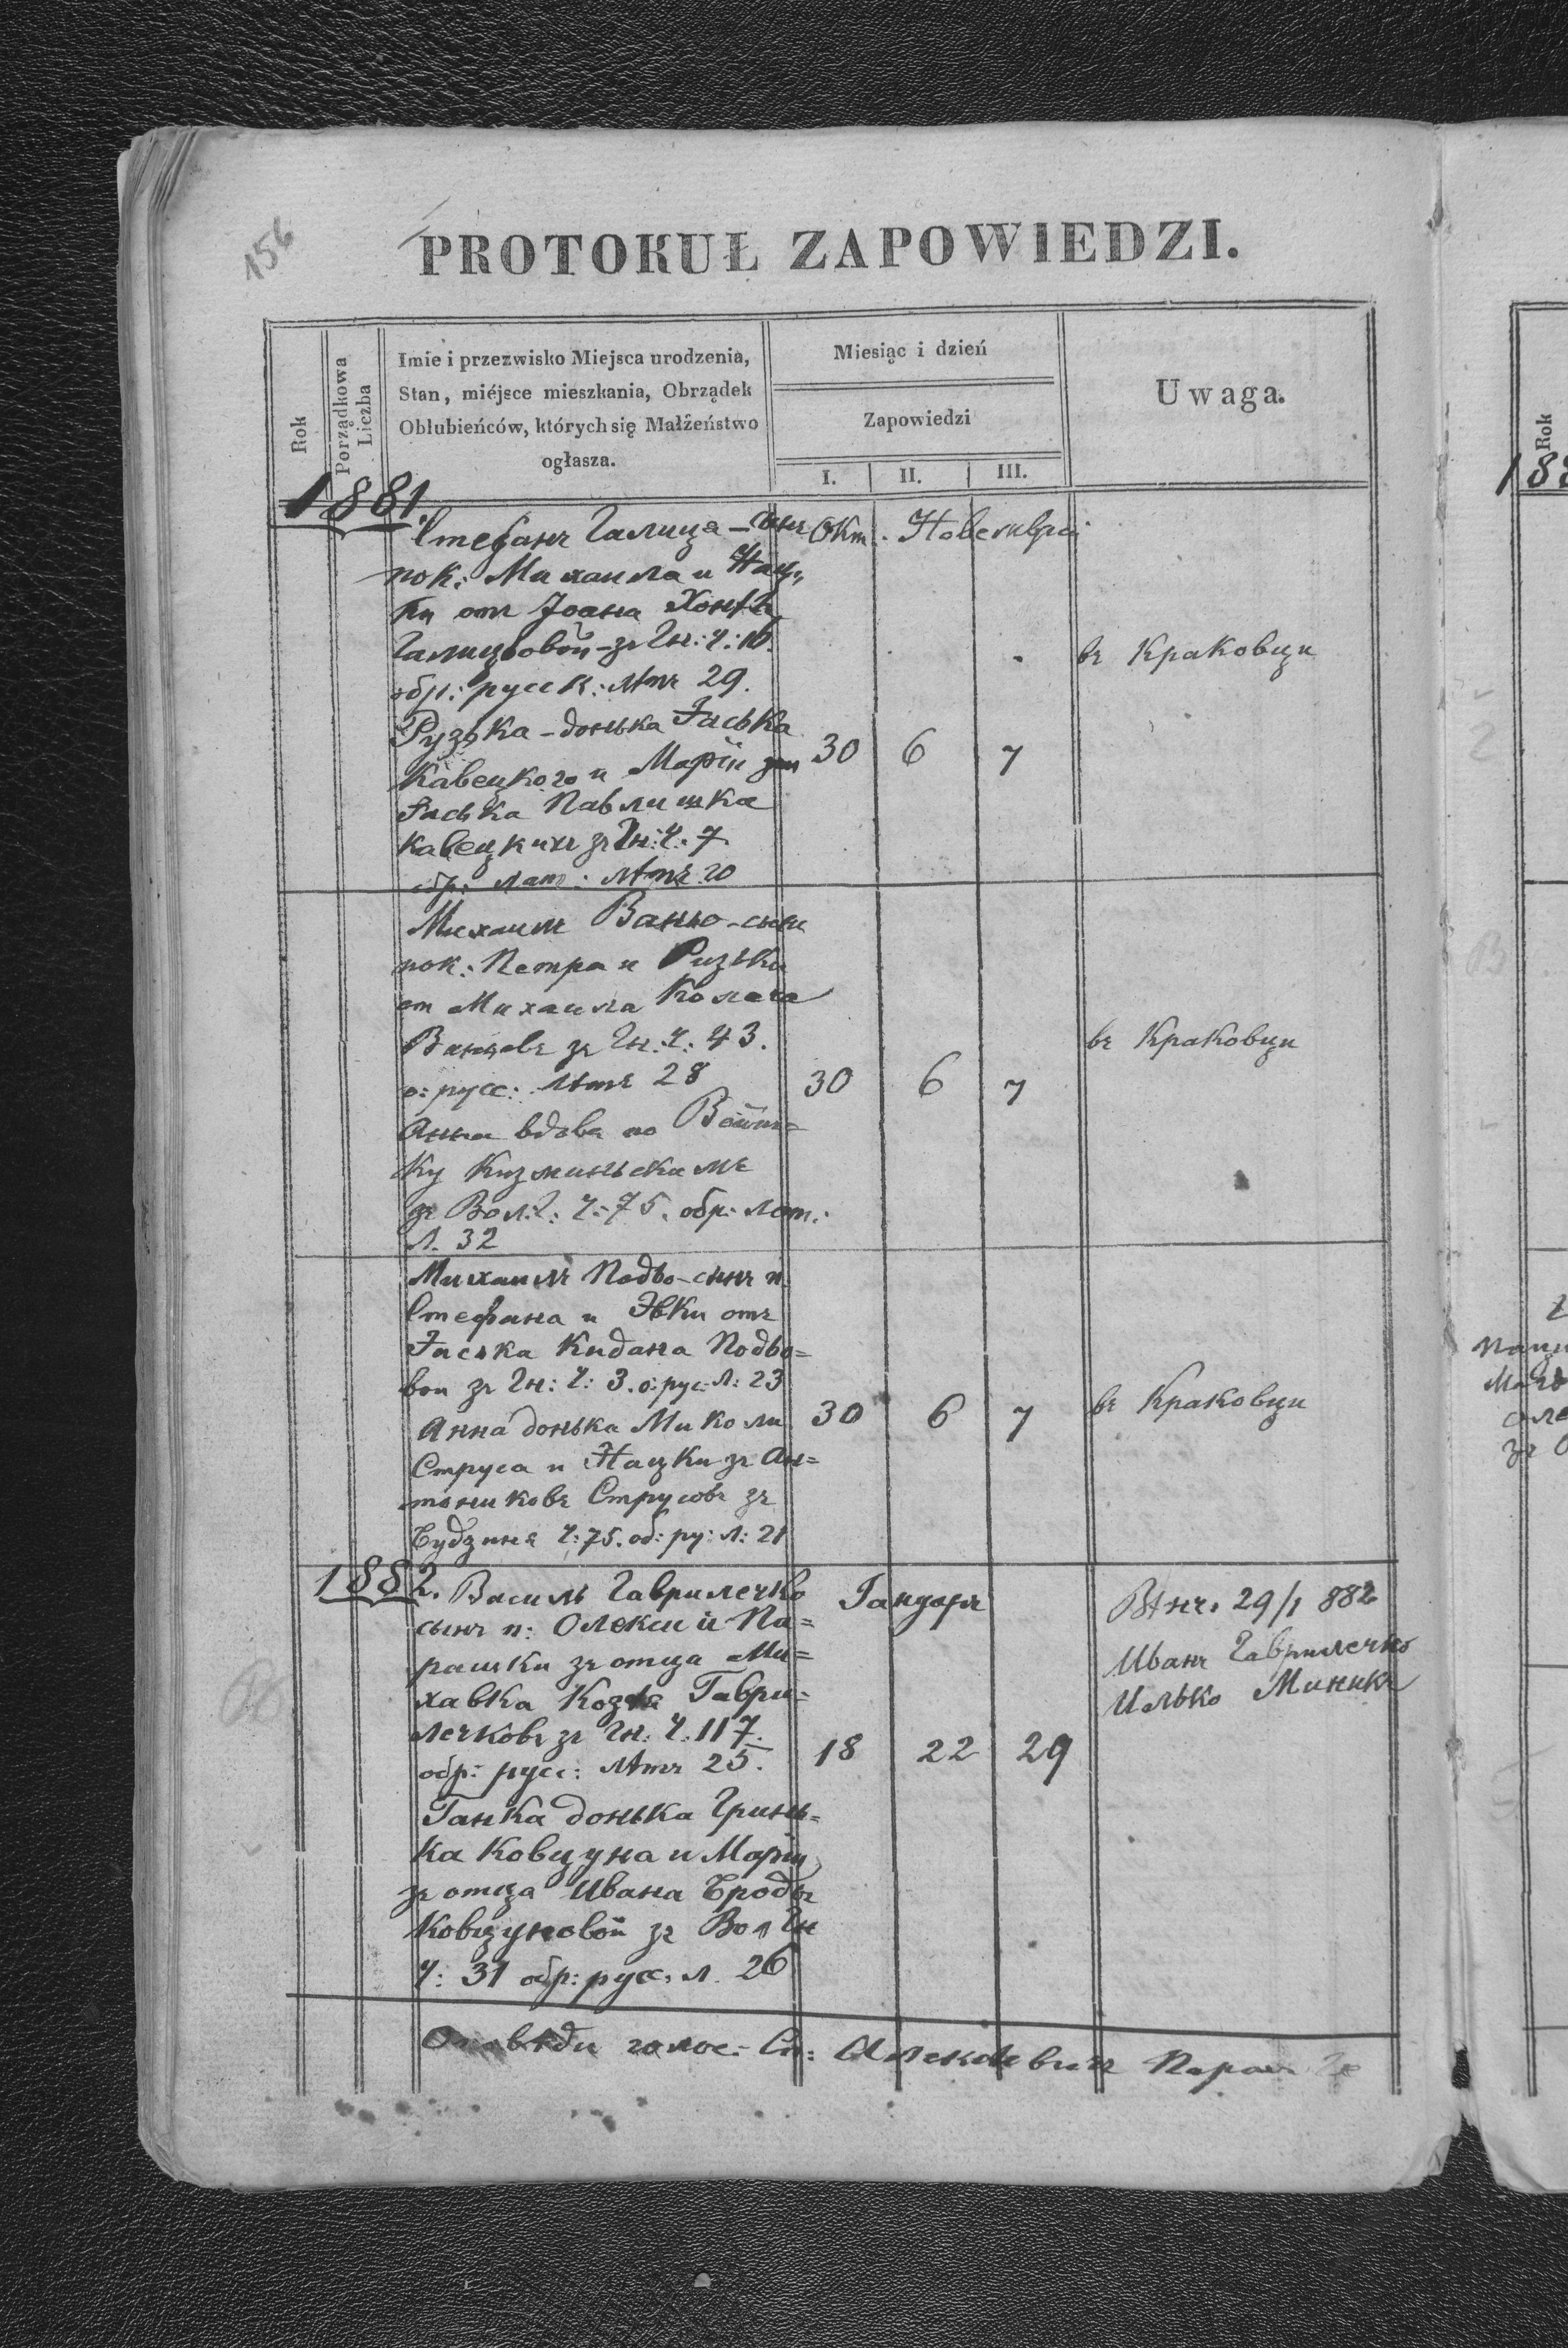 156
PROTOKUŁ ZAPOWIEDZI.
Rok
Porządkowa Liczba
Imie i przezwisko Miejsca urodzenia,
Stan, miéjsce mieszkania, Obrządek
Oblubieńców, których się Małżeństwo
ogłasza.
Miesiąc i dzień
Zapowiedzi
I. II. III.
Uwaga.
1881.
Стефанъ Галица - сынъ
пок: Михаила и Нац
ки отъ Іоана
Галицовои - зъ Гн: ч: 16.
обр: русск: лѣтъ 29.
Рузька - донька Яська
Кавецкого и Маріи
Яська Павлишка
Кавецкихъ зъ Гн: ч. 7
обр: лат: лѣтъ 20
Окт. Новемврій
30 6 7
въ Краковци
Михаилъ Ванько - сынъ
пок: Петра и Рузьки
от Михаила Колача
зъ Гн: ч: 43.
о: русс: лѣтъ 28
Анна вдова по Войтѣ=
ку
зъ Вол: Г: ч: 75. обр: лат:
Л. 32
30 6 7
въ Краковци
Михаилъ Подво - сынъ п.
Стефана и Евки отъ
Яська Кидана Подво=
вои зъ Гн: ч: 3. о: рус: л: 23
Анна донька Миколи
Струса и Нацки зъ Ан=
тониковъ Струсовъ зъ
Будзиня ч: 75. об: ру: л: 21
30 6 7
въ Краковци
1882. Василь Гаврилечко
сынъ п: Олекси и Па=
рашки зъ отца Ми=
хавка Козла Гаври=
лечковъ зъ Гн. ч. 117.
обр: русс: лѣтъ 25.
Ганка донька Гринь=
ка Ковцуна и Маріи
зъ отца Ивана Броды
Ковцуновои зъ Вол Гн
ч: 31 обр: русс. л. 26
Януаръ
18 22 29
Вѣнч. 29/1 882
Иванъ Гаврилечко
Илько Миникъ
голос: